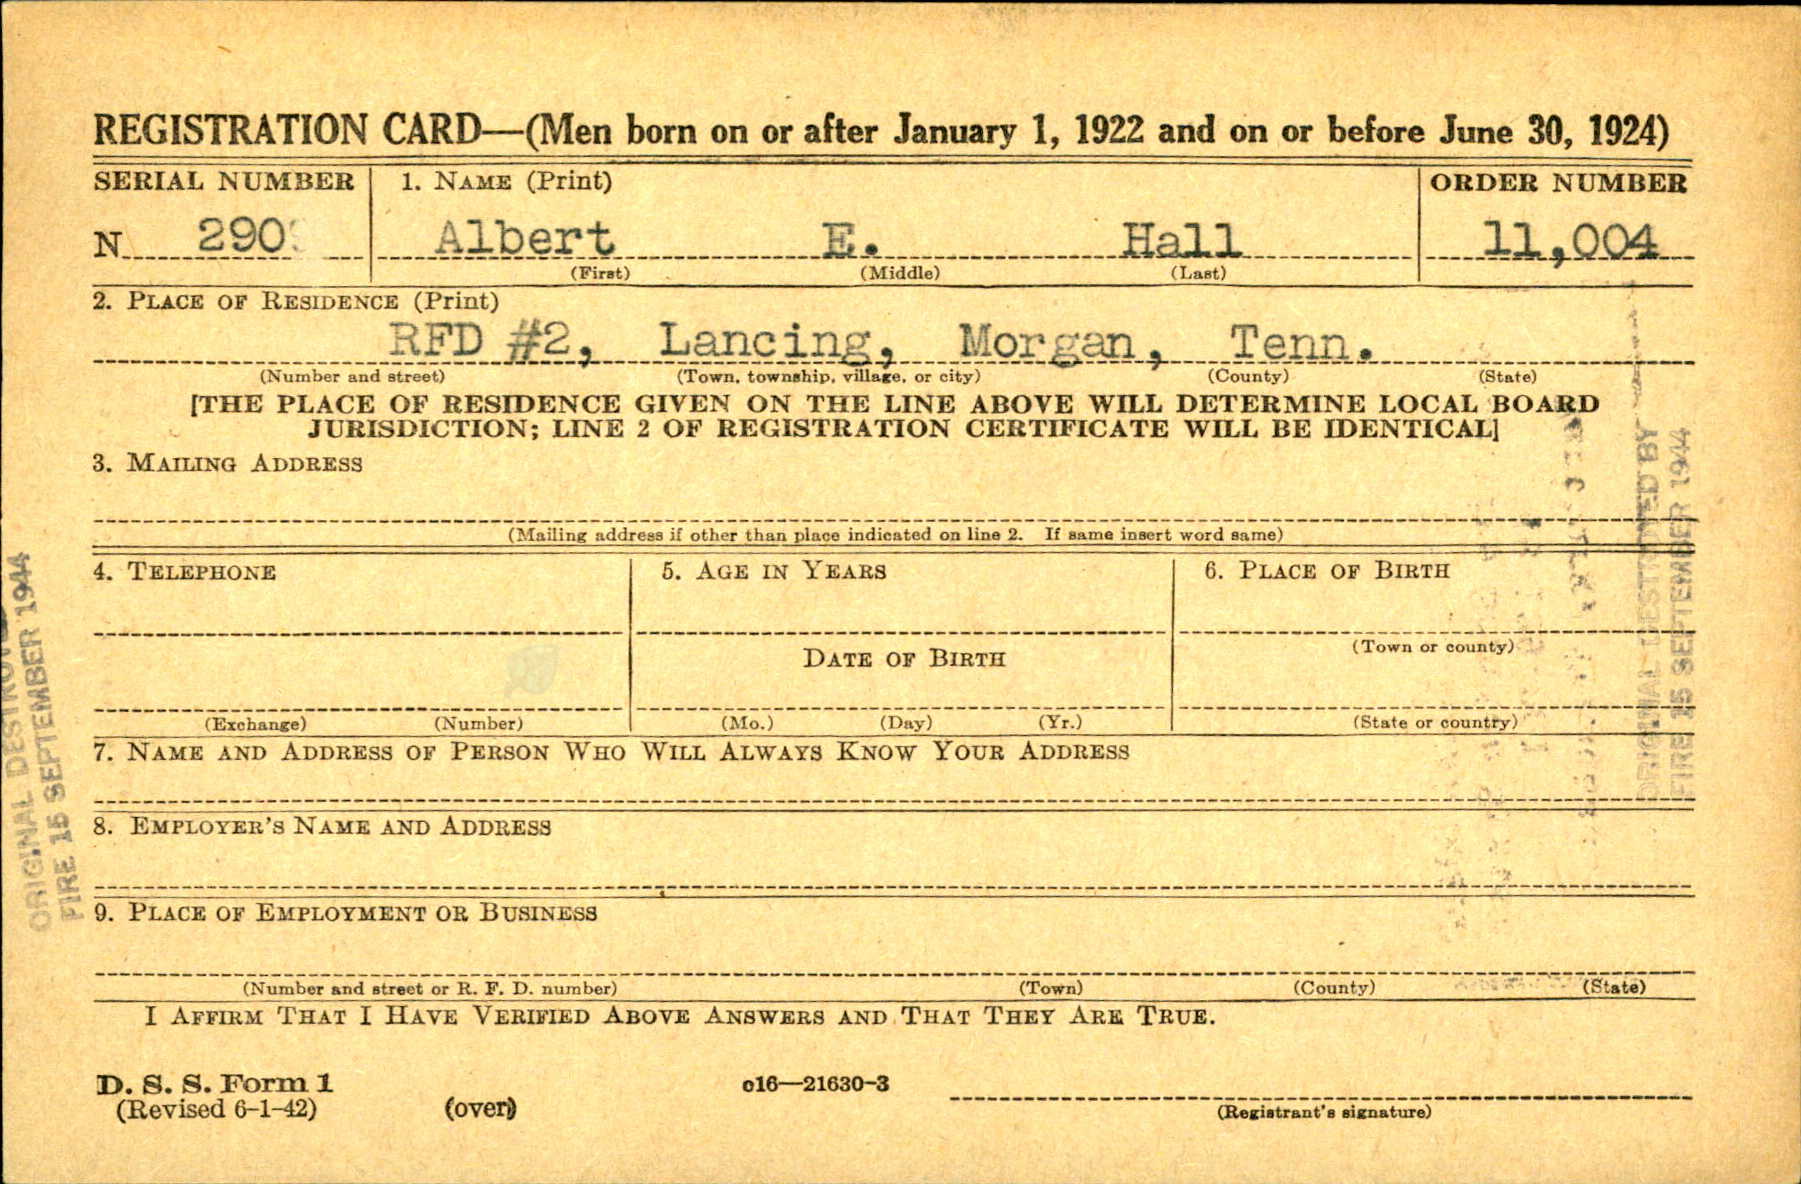 REGISTRATION CARD—(Men born on or after January 1, 1922 and on or before June 30, 1924)
SERIAL NUMBER 1. NAME (Print) ORDER NUMBER
N 290 Albert E. Hall 11,004
(First) (Middle) (Last)
2. PLACE OF RESIDENCE (Print)
RFD #2, Lancing, Morgan, Tenn.
(Number and street) (Town, township, village, or city) (County) (State)
[THE PLACE OF RESIDENCE GIVEN ON THE LINE ABOVE WILL DETERMINE LOCAL BOARD
JURISDICTION; LINE 2 OF REGISTRATION CERTIFICATE WILL BE IDENTICAL]
3. MAILING ADDRESS
(Mailing address if other than place indicated on line 2. If same insert word same)
4. TELEPHONE 5. AGE IN YEARS 6. PLACE OF BIRTH
(Town or county)
DATE OF BIRTH
(Exchange) (Number) (Mo.) (Day) (Yr.) (State or country)
7. NAME AND ADDRESS OF PERSON WHO WILL ALWAYS KNOW YOUR ADDRESS
8. EMPLOYER'S NAME AND ADDRESS
9. PLACE OF EMPLOYMENT OR BUSINESS
(Number and street or R. F. D. number) (Town) (County) (State)
I AFFIRM THAT I HAVE VERIFIED ABOVE ANSWERS AND THAT THEY ARE TRUE.
D. S. S. Form 1 c16—21630-3
(Revised 6-1-42) (over) (Registrant's signature)
ORIGINAL DESTROYED
FIRE 15 SEPTEMBER 1944
ORIGINAL DESTROYED BY
FIRE 15 SEPTEMBER 1944